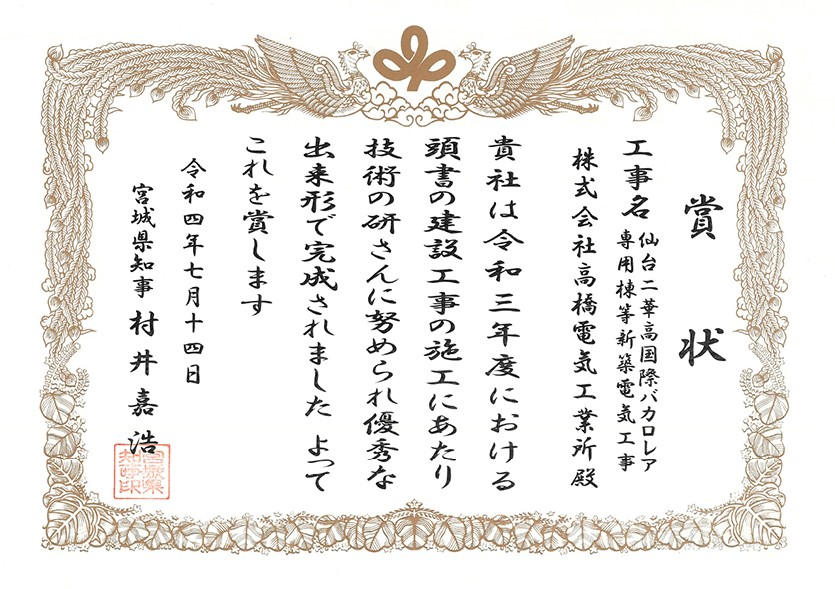 賞状
工事名 仙台二華高国際バカロレア
専用棟等新築電気工事
株式会社高橋電気工業所殿
貴社は令和三年度における
頭書の建設工事の施工にあたり
技術の研さんに努められ優秀な
出来形で完成されました よって
これを賞します
令和四年七月十四日
宮城県知事 村井嘉浩
宮城県知事印